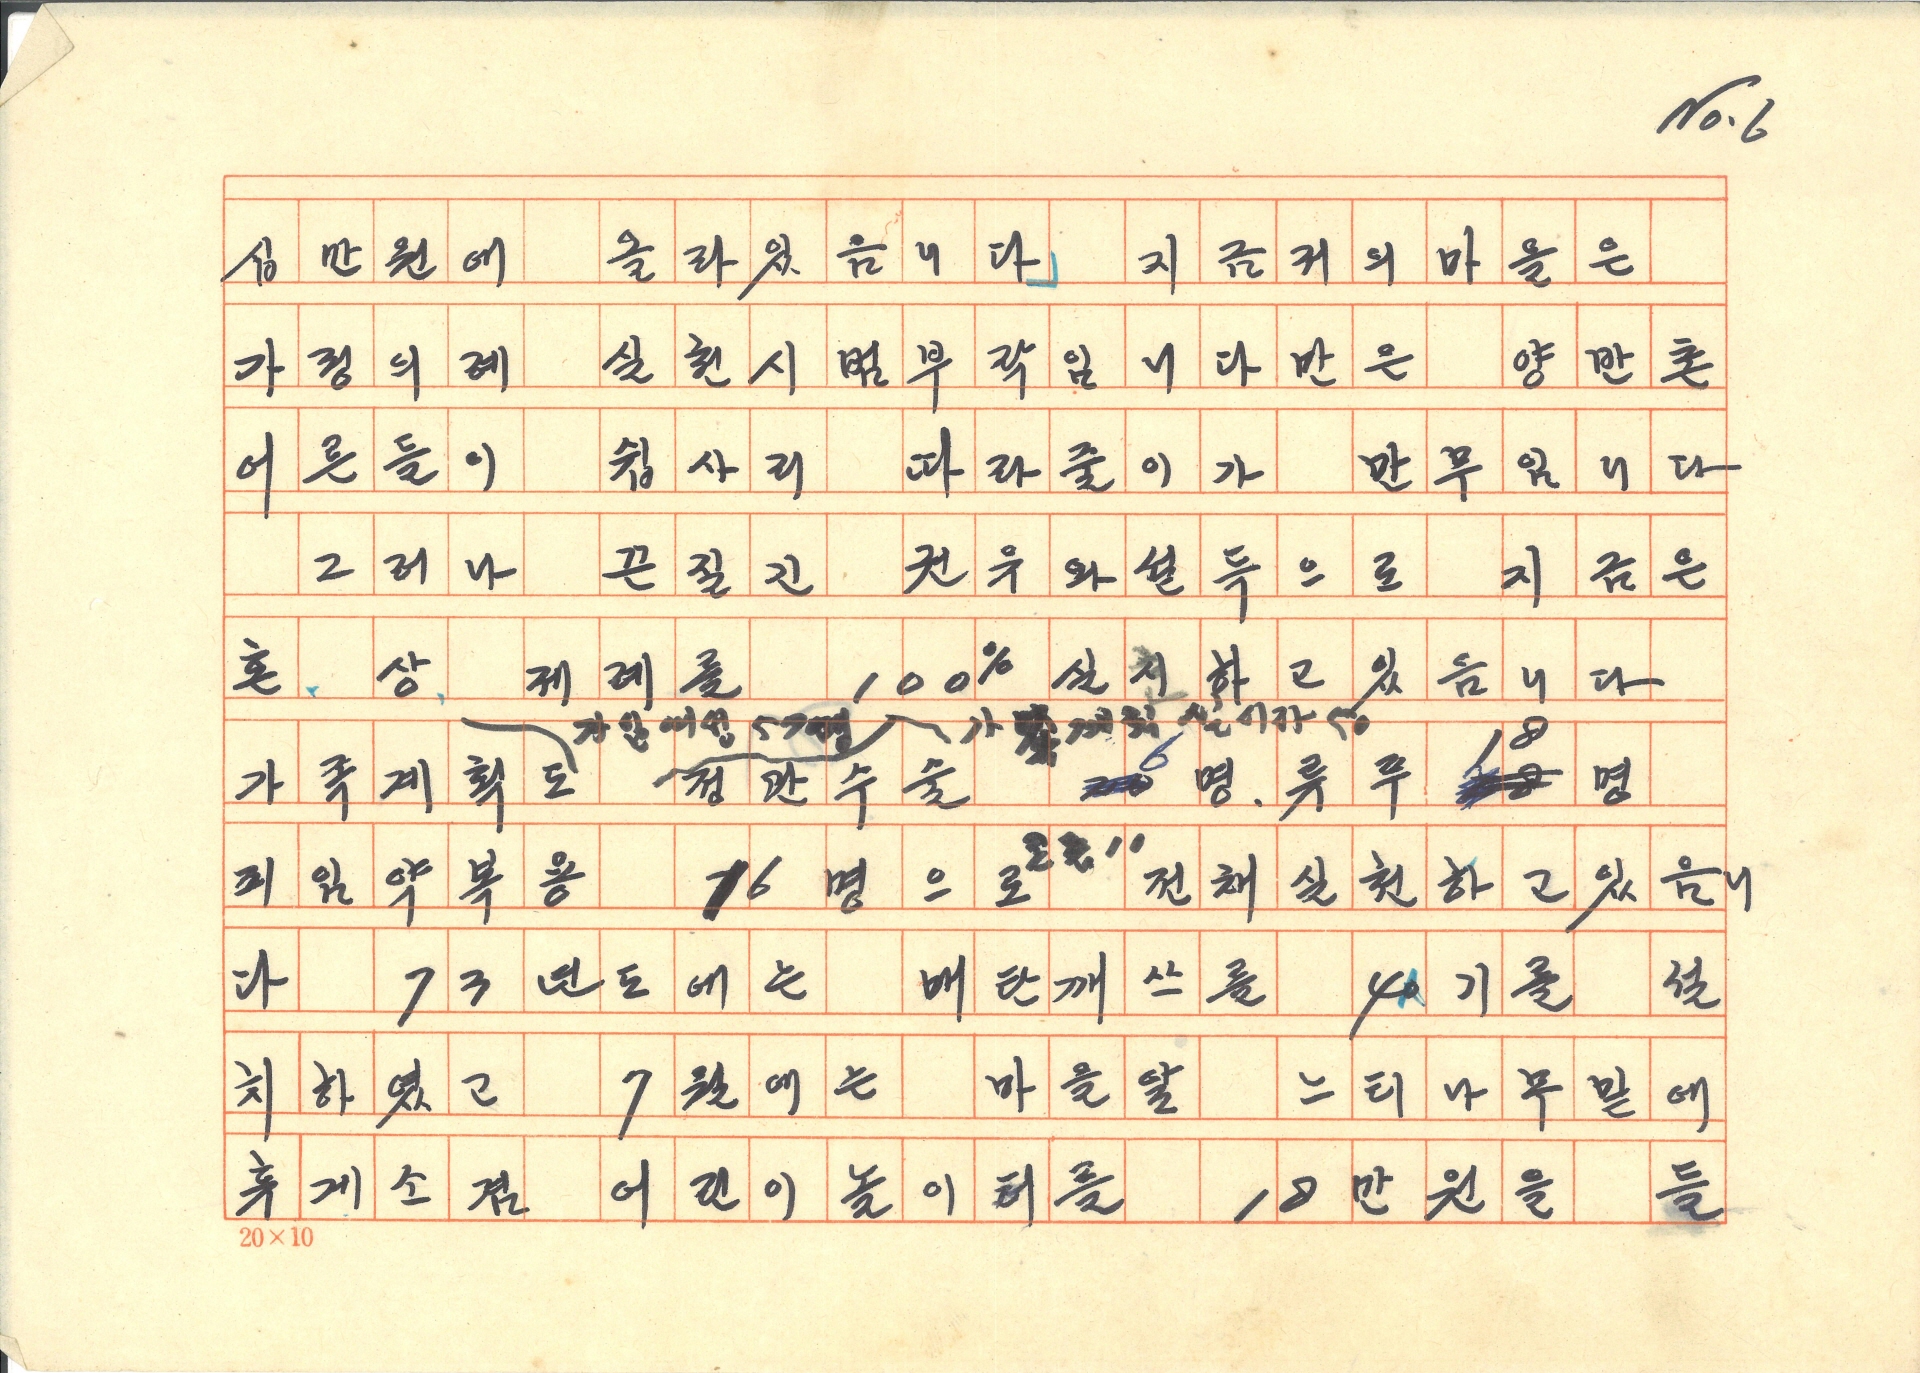 No. 6
십만원에 올라있읍니다」 지금저의마을은
가정의례 실천시범부락입니다만은 양반촌
어른들이 쉽사리 따라줄이가 만무입니다
그러나 끈질긴 권우와설득으로 지금은
혼、상、제례를 100% 실시하고있읍니다
가임여성 57명 가족계획 실시자 50
가족계획도 정관수술 6명. 루푸 18명
피임약복용 16명으로 전채실천하고있음니
다 73년도에는 메탄깨쓰를 40기를 설
치하였고 7월에는 마을앞 느티나무밑에
휴게소겸 어린이놀이터를 18만원을 들
20×10